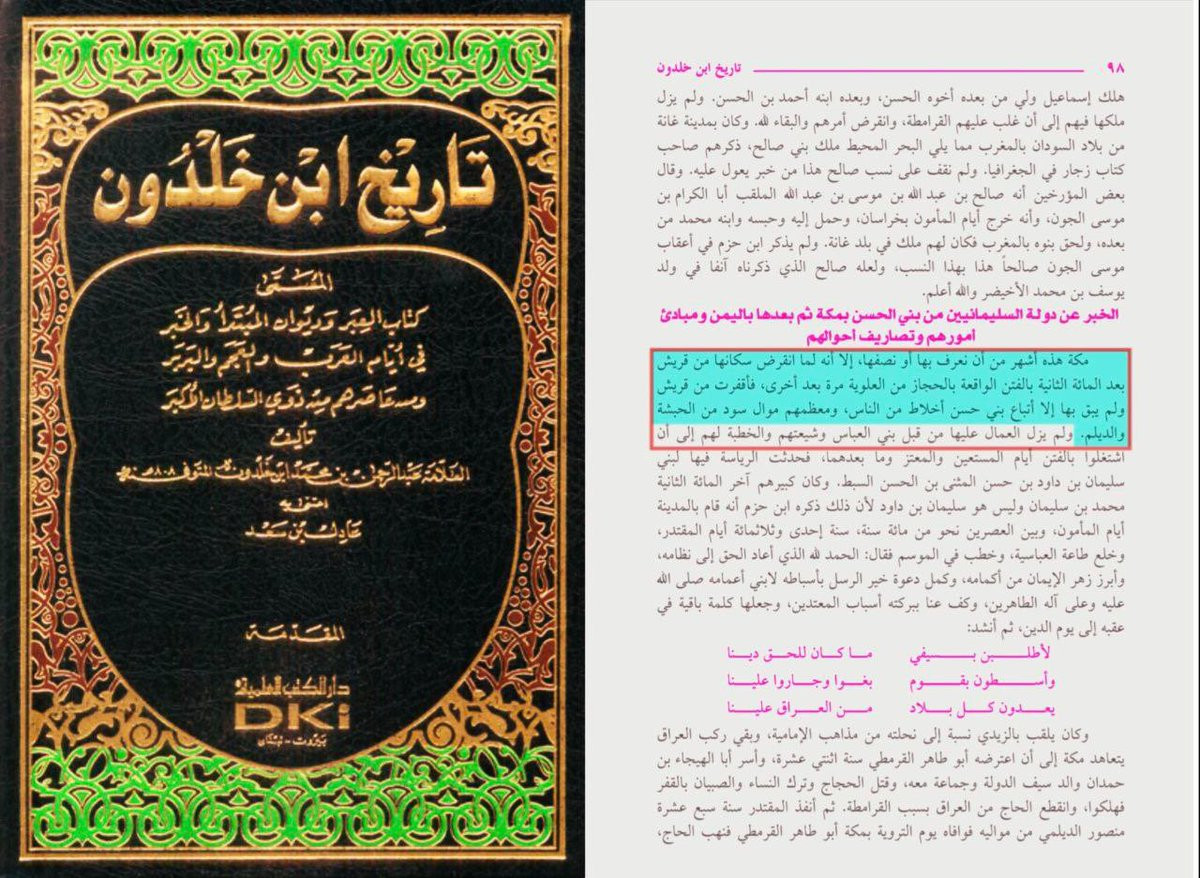 تَارِيْخ ابْن خَلْدُون
المُسَمَّى
كتاب العِبَر وديوان المُبتَدأ والخَبَر
في أيّام العَرَب والعَجَم والبَربَر
ومن عاصرهم من ذوي السّلطان الأكبر
تأليف
العلّامة عبد الرحمٰن بن محمد ابن خلدون المتوفى ٨٠٨هـ
اعتنى به
عادل بن سعد
المقدمة
دار الكتب العلمية
DKi
بيروت - لبنان
٩٨ تاريخ ابن خلدون
هلك إسماعيل ولي من بعده أخوه الحسن، وبعده ابنه أحمد بن الحسن. ولم يزل
ملكها فيهم إلى أن غلب عليهم القرامطة، وانقرض أمرهم والبقاء لله. وكان بمدينة غانة
من بلاد السودان بالمغرب مما يلي البحر المحيط ملك بني صالح، ذكرهم صاحب
كتاب زجار في الجغرافيا. ولم نقف على نسب صالح هذا من خبر يعول عليه. وقال
بعض المؤرخين أنه صالح بن عبد الله بن موسى بن عبد الله الملقب أبا الكرام بن
موسى الجون، وأنه خرج أيام المأمون بخراسان، وحمل إليه وحبسه وابنه محمد من
بعده، ولحق بنوه بالمغرب فكان لهم ملك في بلد غانة. ولم يذكر ابن حزم في أعقاب
موسى الجون صالحاً هذا بهذا النسب، ولعله صالح الذي ذكرناه آنفا في ولد
يوسف بن محمد الأخيضر والله أعلم.
الخبر عن دولة السليمانيين من بني الحسن بمكة ثم بعدها باليمن ومبادئ
أمورهم وتصاريف أحوالهم
مكة هذه أشهر من أن نعرف بها أو نصفها، إلا أنه لما انقرض سكانها من قريش
بعد المائة الثانية بالفتن الواقعة بالحجاز من العلوية مرة بعد أخرى، فأقفرت من قريش
ولم يبق بها إلا أتباع بني حسن أخلاط من الناس، ومعظمهم موال سود من الحبشة
والديلم. ولم يزل العمال عليها من قبل بني العباس وشيعتهم والخطبة لهم إلى أن
اشتغلوا بالفتن أيام المستعين والمعتز وما بعدهما، فحدثت الرياسة فيها لبني
سليمان بن داود بن حسن المثنى بن الحسن السبط. وكان كبيرهم آخر المائة الثانية
محمد بن سليمان وليس هو سليمان بن داود لأن ذلك ذكره ابن حزم أنه قام بالمدينة
أيام المأمون، وبين العصرين نحو من مائة سنة، سنة إحدى وثلاثمائة أيام المقتدر،
وخلع طاعة العباسية، وخطب في الموسم فقال: الحمد لله الذي أعاد الحق إلى نظامه،
وأبرز زهر الإيمان من أكمامه، وكمل دعوة خير الرسل بأسباطه لابني أعمامه صلى الله
عليه وعلى آله الطاهرين، وكف عنا ببركته أسباب المعتدين، وجعلها كلمة باقية في
عقبه إلى يوم الدين، ثم أنشد:
لأطلبن بسيفي ما كان للحق دينا
وأسطون بقوم بغوا وجاروا علينا
يعدون كل بلاد من العراق علينا
وكان يلقب بالزيدي نسبة إلى نحلته من مذاهب الإمامية، وبقي ركب العراق
يتعاهد مكة إلى أن اعترضه أبو طاهر القرمطي سنة اثنتي عشرة، وأسر أبا الهيجاء بن
حمدان والد سيف الدولة وجماعة معه، وقتل الحجاج وترك النساء والصبيان بالقفر
فهلكوا، وانقطع الحاج من العراق بسبب القرامطة. ثم أنفذ المقتدر سنة سبع عشرة
منصور الديلمي من مواليه فوافاه يوم التروية بمكة أبو طاهر القرمطي فنهب الحاج،